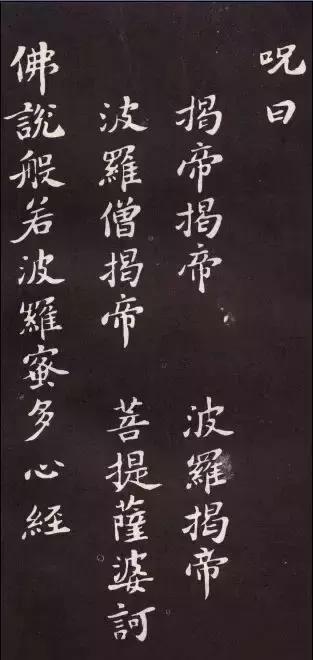 呪曰
揭帝揭帝 波羅揭帝
波羅僧揭帝 菩提薩婆訶
佛說般若波羅蜜多心經